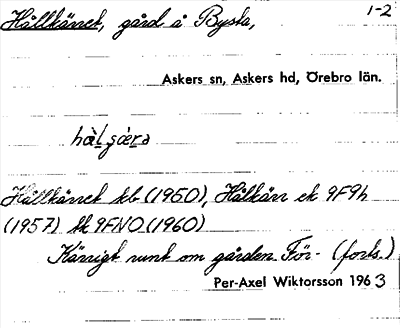 Hållkärret, gård å Bysta, 1-2
Askers sn, Askers hd, Örebro län.
hàlɟæ̀rə
Hållkärret kb (1950), Hålkärr ek 9F9h
(1957) Ak 9FNO (1960)
Kärrigt runt om gården. För- (forts.)
Per-Axel Wiktorsson 1963